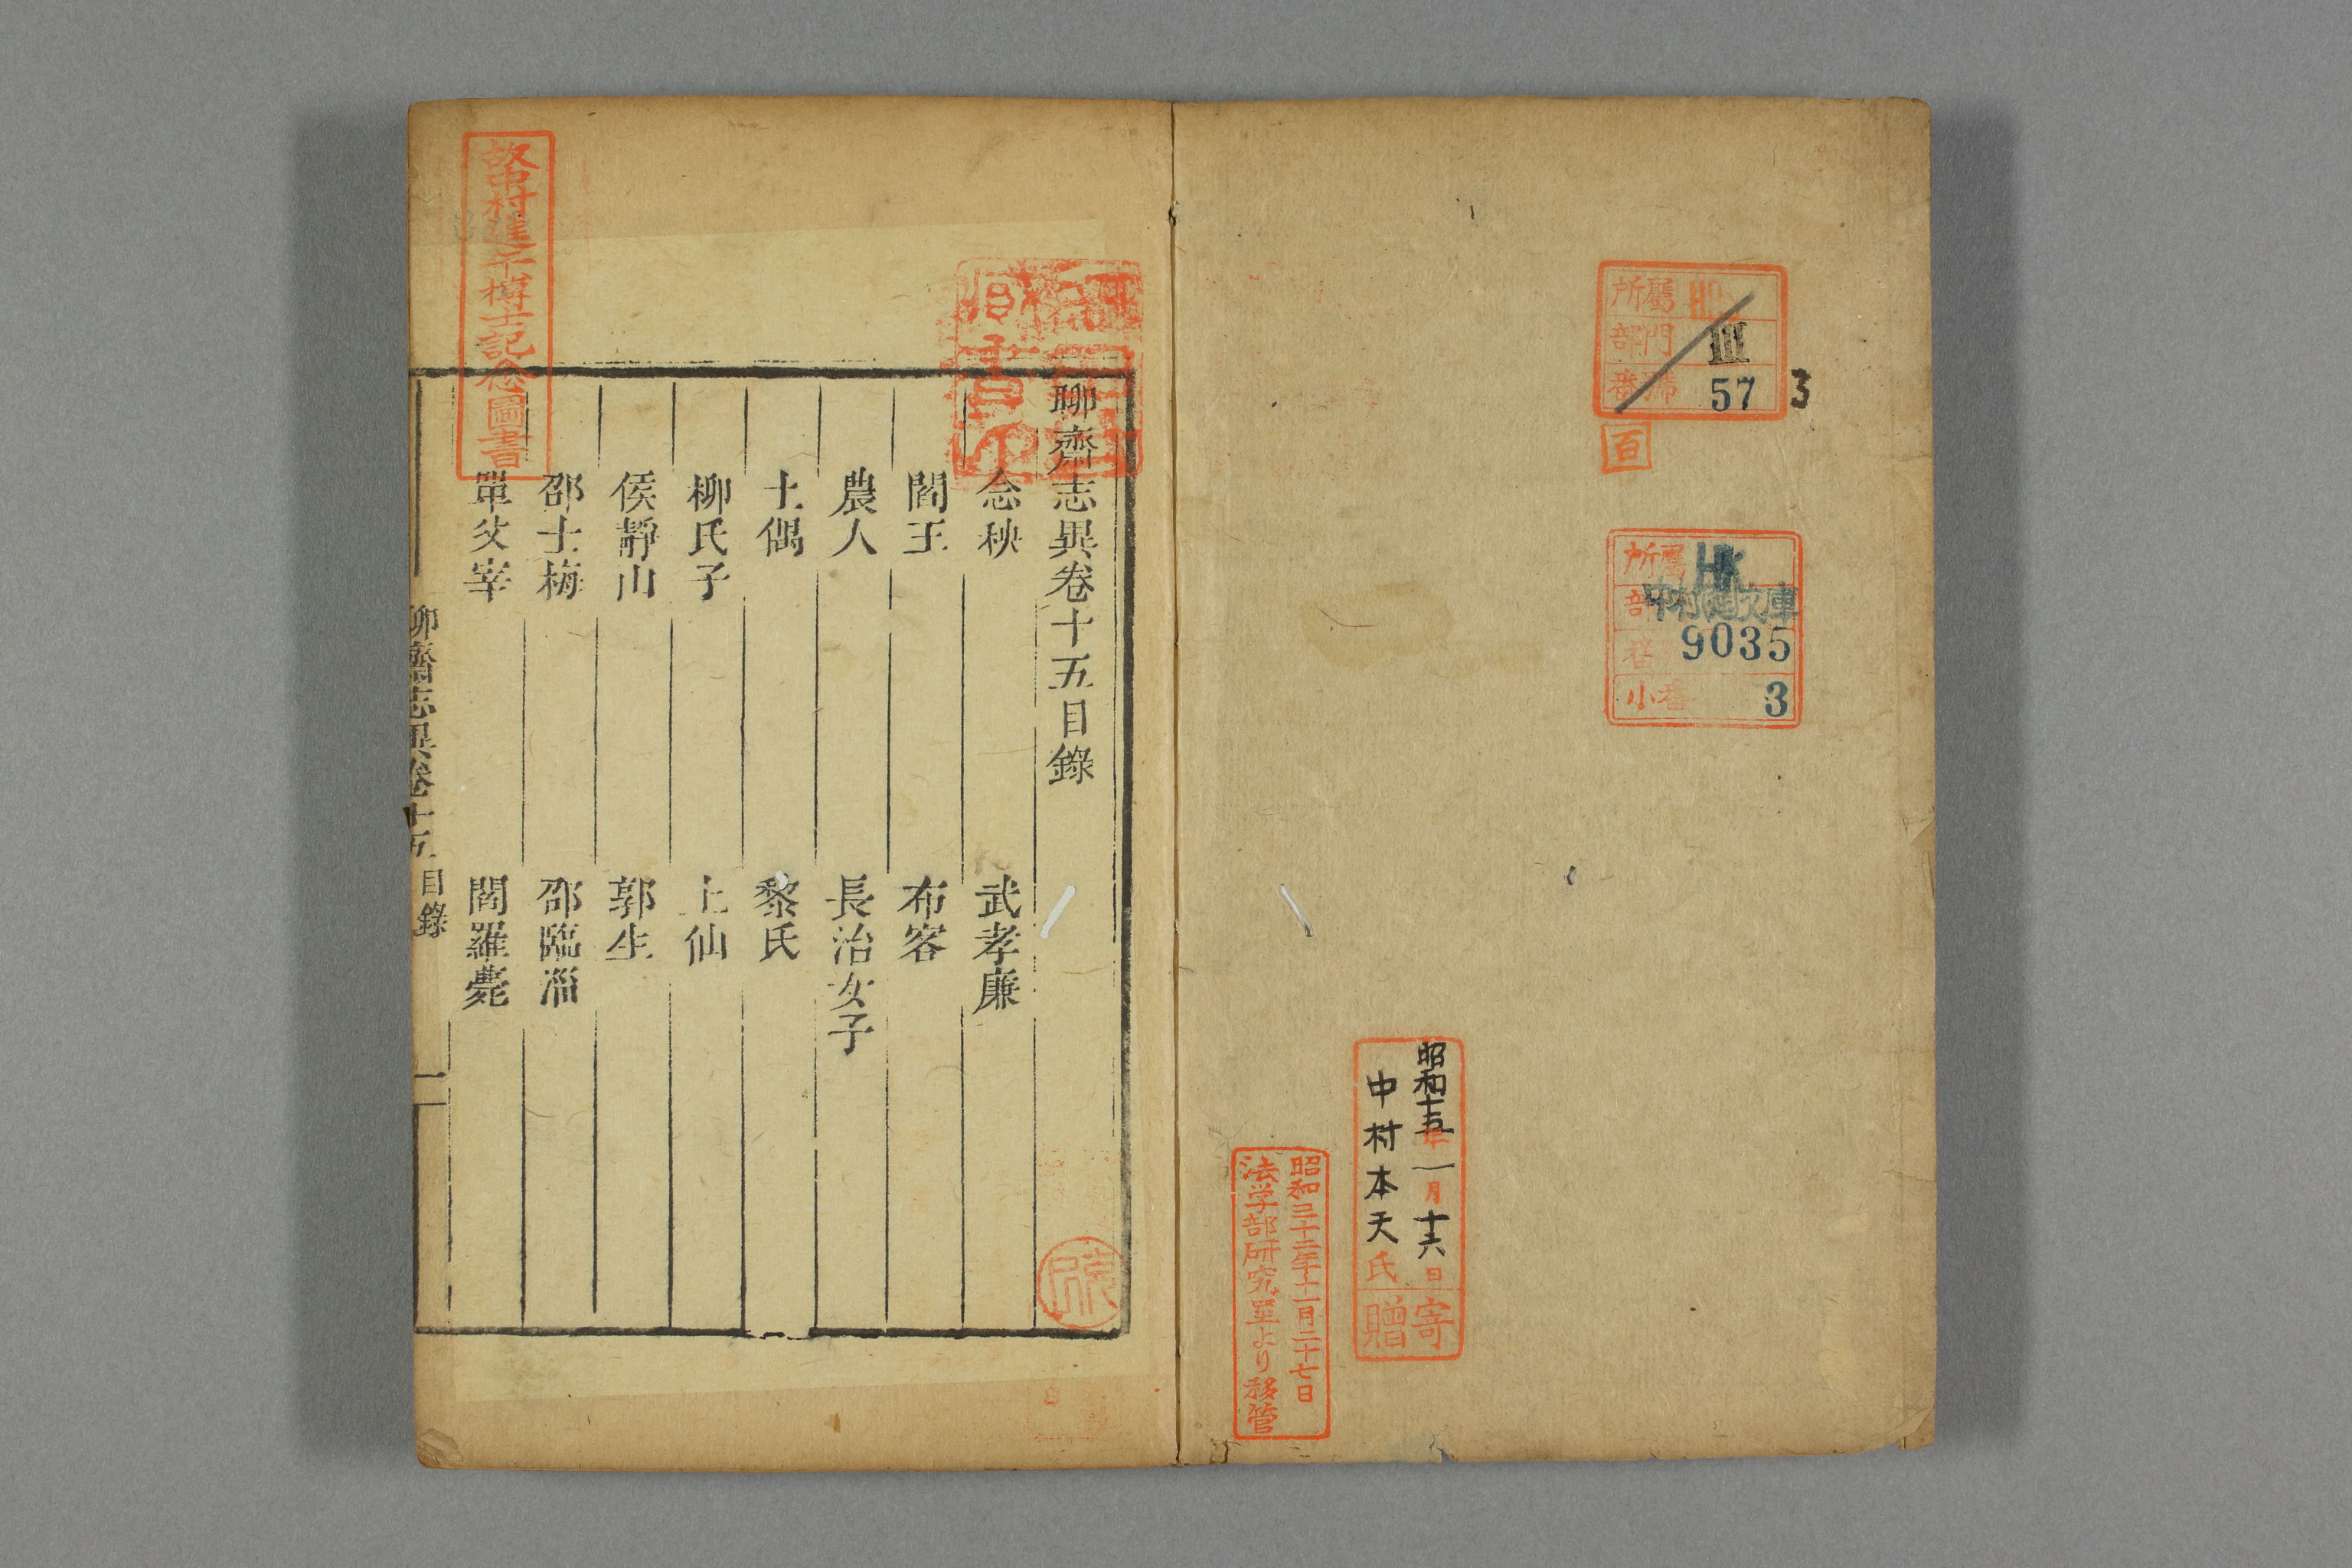 所屬
部門 III
番號 57
3
百
所屬 HK
部 中村進文庫
番 9035
小番 3
昭和十五年一月十六日
中村本天氏
寄贈
昭和三十二年十一月二十七日
法学部研究室より移管
聊齋志異卷十五目錄
念秧
武孝廉
閻王
布客
農人
長治女子
土偶
黎氏
柳氏子
上仙
侯靜山
郭生
邵士梅
邵臨淄
單父宰
閻羅薨
聊齋志異卷十五 目錄
一
故中村進午博士記念圖書